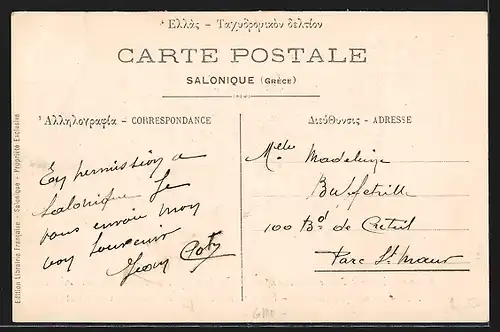 Ἑλλὰς – Ταχυδρομικὸν δελτίον
CARTE POSTALE
SALONIQUE (GRÈCE)
Ἀλληλογραφία - CORRESPONDANCE
En permission a
Salonique Je
vous envoie mon
bon Souvenir
Διεύθυνσις - ADRESSE
Melle Madeleine
100 Bd de Creteil
Parc St Maur
Edition Librairie Française - Salonique - Propriété Exclusive